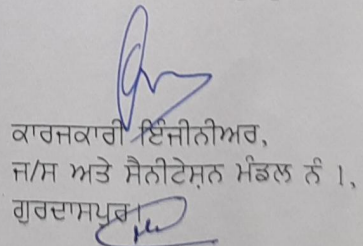 ਕਾਰਜਕਾਰੀ ਇੰਜੀਨੀਅਰ,
ਜ/ਸ ਅਤੇ ਸੈਨੀਟੇਸ਼ਨ ਮੰਡਲ ਨੰ 1,
ਗੁਰਦਾਸਪੁਰ।